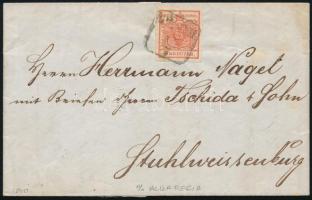 Herrn Herrmann Naget
mit Briefen Herrn Tschida & Sohn
Stuhlweissenburg